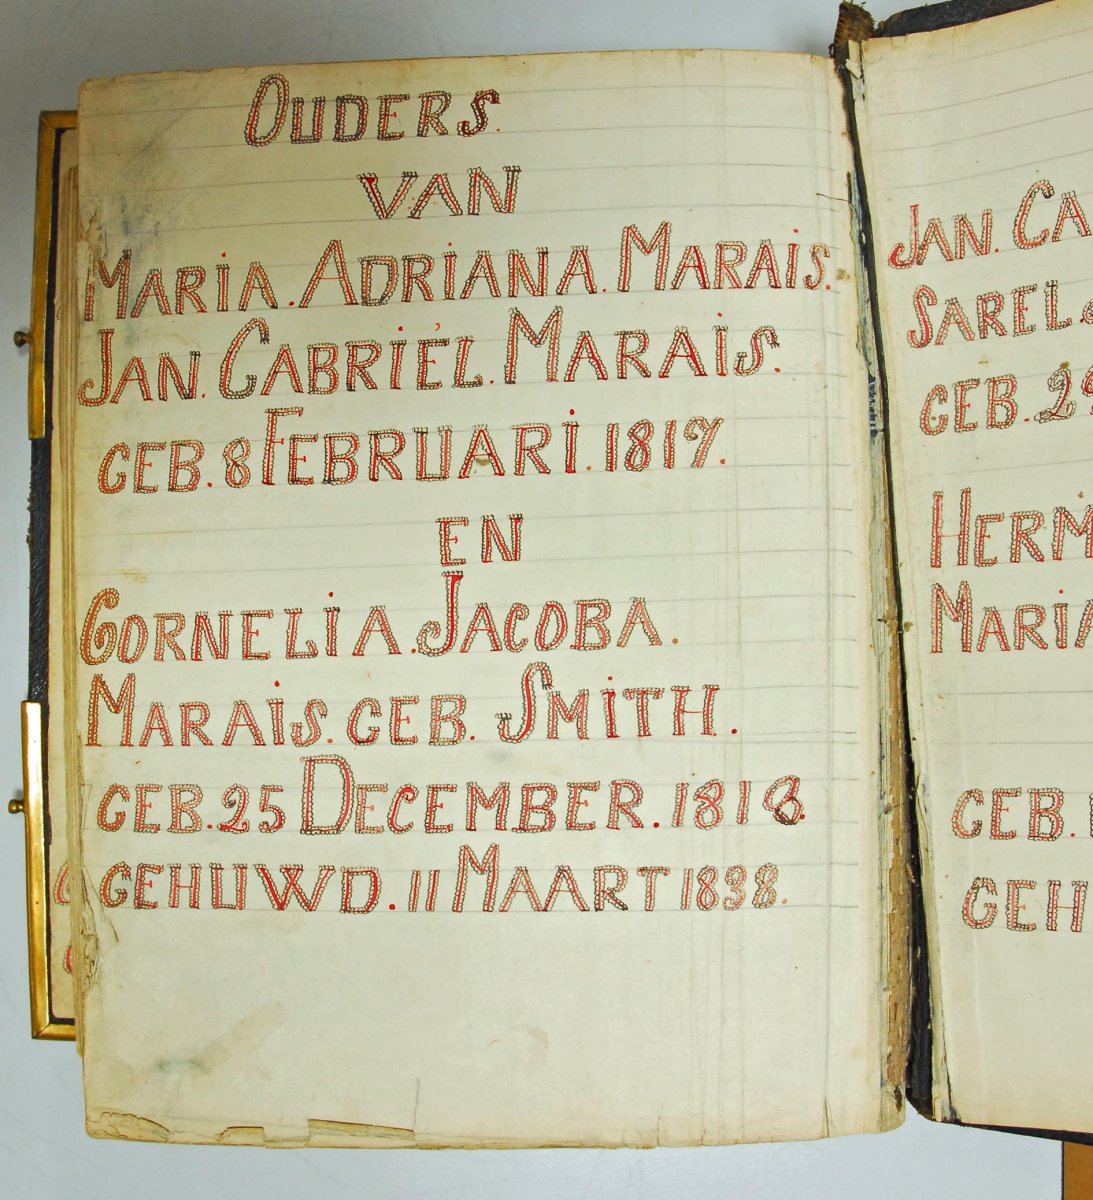 OUDERS
VAN
MARIA. ADRIANA. MARAIS.
JAN. GABRIËL. MARAIS.
GEB. 8 FEBRUARI. 1817.
EN
CORNELIA. JACOBA.
MARAIS. GEB. SMITH.
GEB. 25 DECEMBER. 1818.
GEHUWD. 11 MAART 1838.
JAN. CA
SAREL
GEB. 2
HERM
MARIA
GEB.
GEH